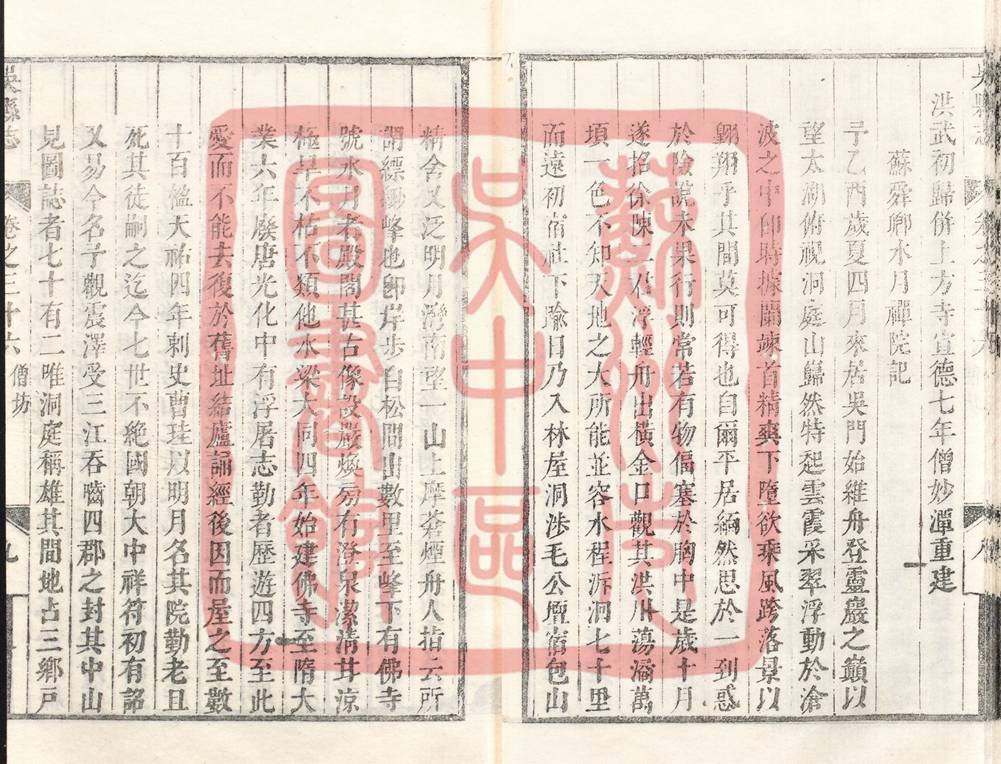 吳縣志 卷之三十六 八
洪武初歸併上方寺宣德七年僧妙潭重建
蘇舜卿水月禪院記
予乙酉歲夏四月來居吳門始維舟登靈巖之巔以
望太湖俯視洞庭山巋然特起雲霞采翠浮動於滄
波之中卽時據闌竦首精爽下墮欲乘風跨落景以
翺翔乎其間莫可得也自爾平居緬然思於一到惑
於險說未果行則常若有物偪塞於胸中是歲十月
遂招徐陳二君浮輕舟出橫金口觀其洪川蕩潏萬
頃一色不知天地之大所能並容水程泝洄七十里
而遠初宿社下踰日乃入林屋洞涉毛公壇宿包山
精舍又泛明月灣南望一山上摩蒼煙舟人指云所
謂縹緲峰也卽岸步自松間出數里至峰下有佛寺
號水月者殿閣甚古像設嚴煥旁有澄泉潔淸甘涼
極旱不枯不類他水梁大同四年始建佛寺至隋大
業六年廢唐光化中有浮屠志勤者歷遊四方至此
愛而不能去復於舊址結廬誦經後因而屋之至數
十百楹天祐四年刺史曹珪以明月名其院勤老且
死其徒嗣之迄今七世不絕國朝大中祥符初有詔
又易今名予觀震澤受三江吞嚙四郡之封其中山
見圖誌者七十有二唯洞庭稱雄其間地占三鄉戶
吳縣志 卷之三十六 僧坊 九
蘇州市
吳中區
圖書館